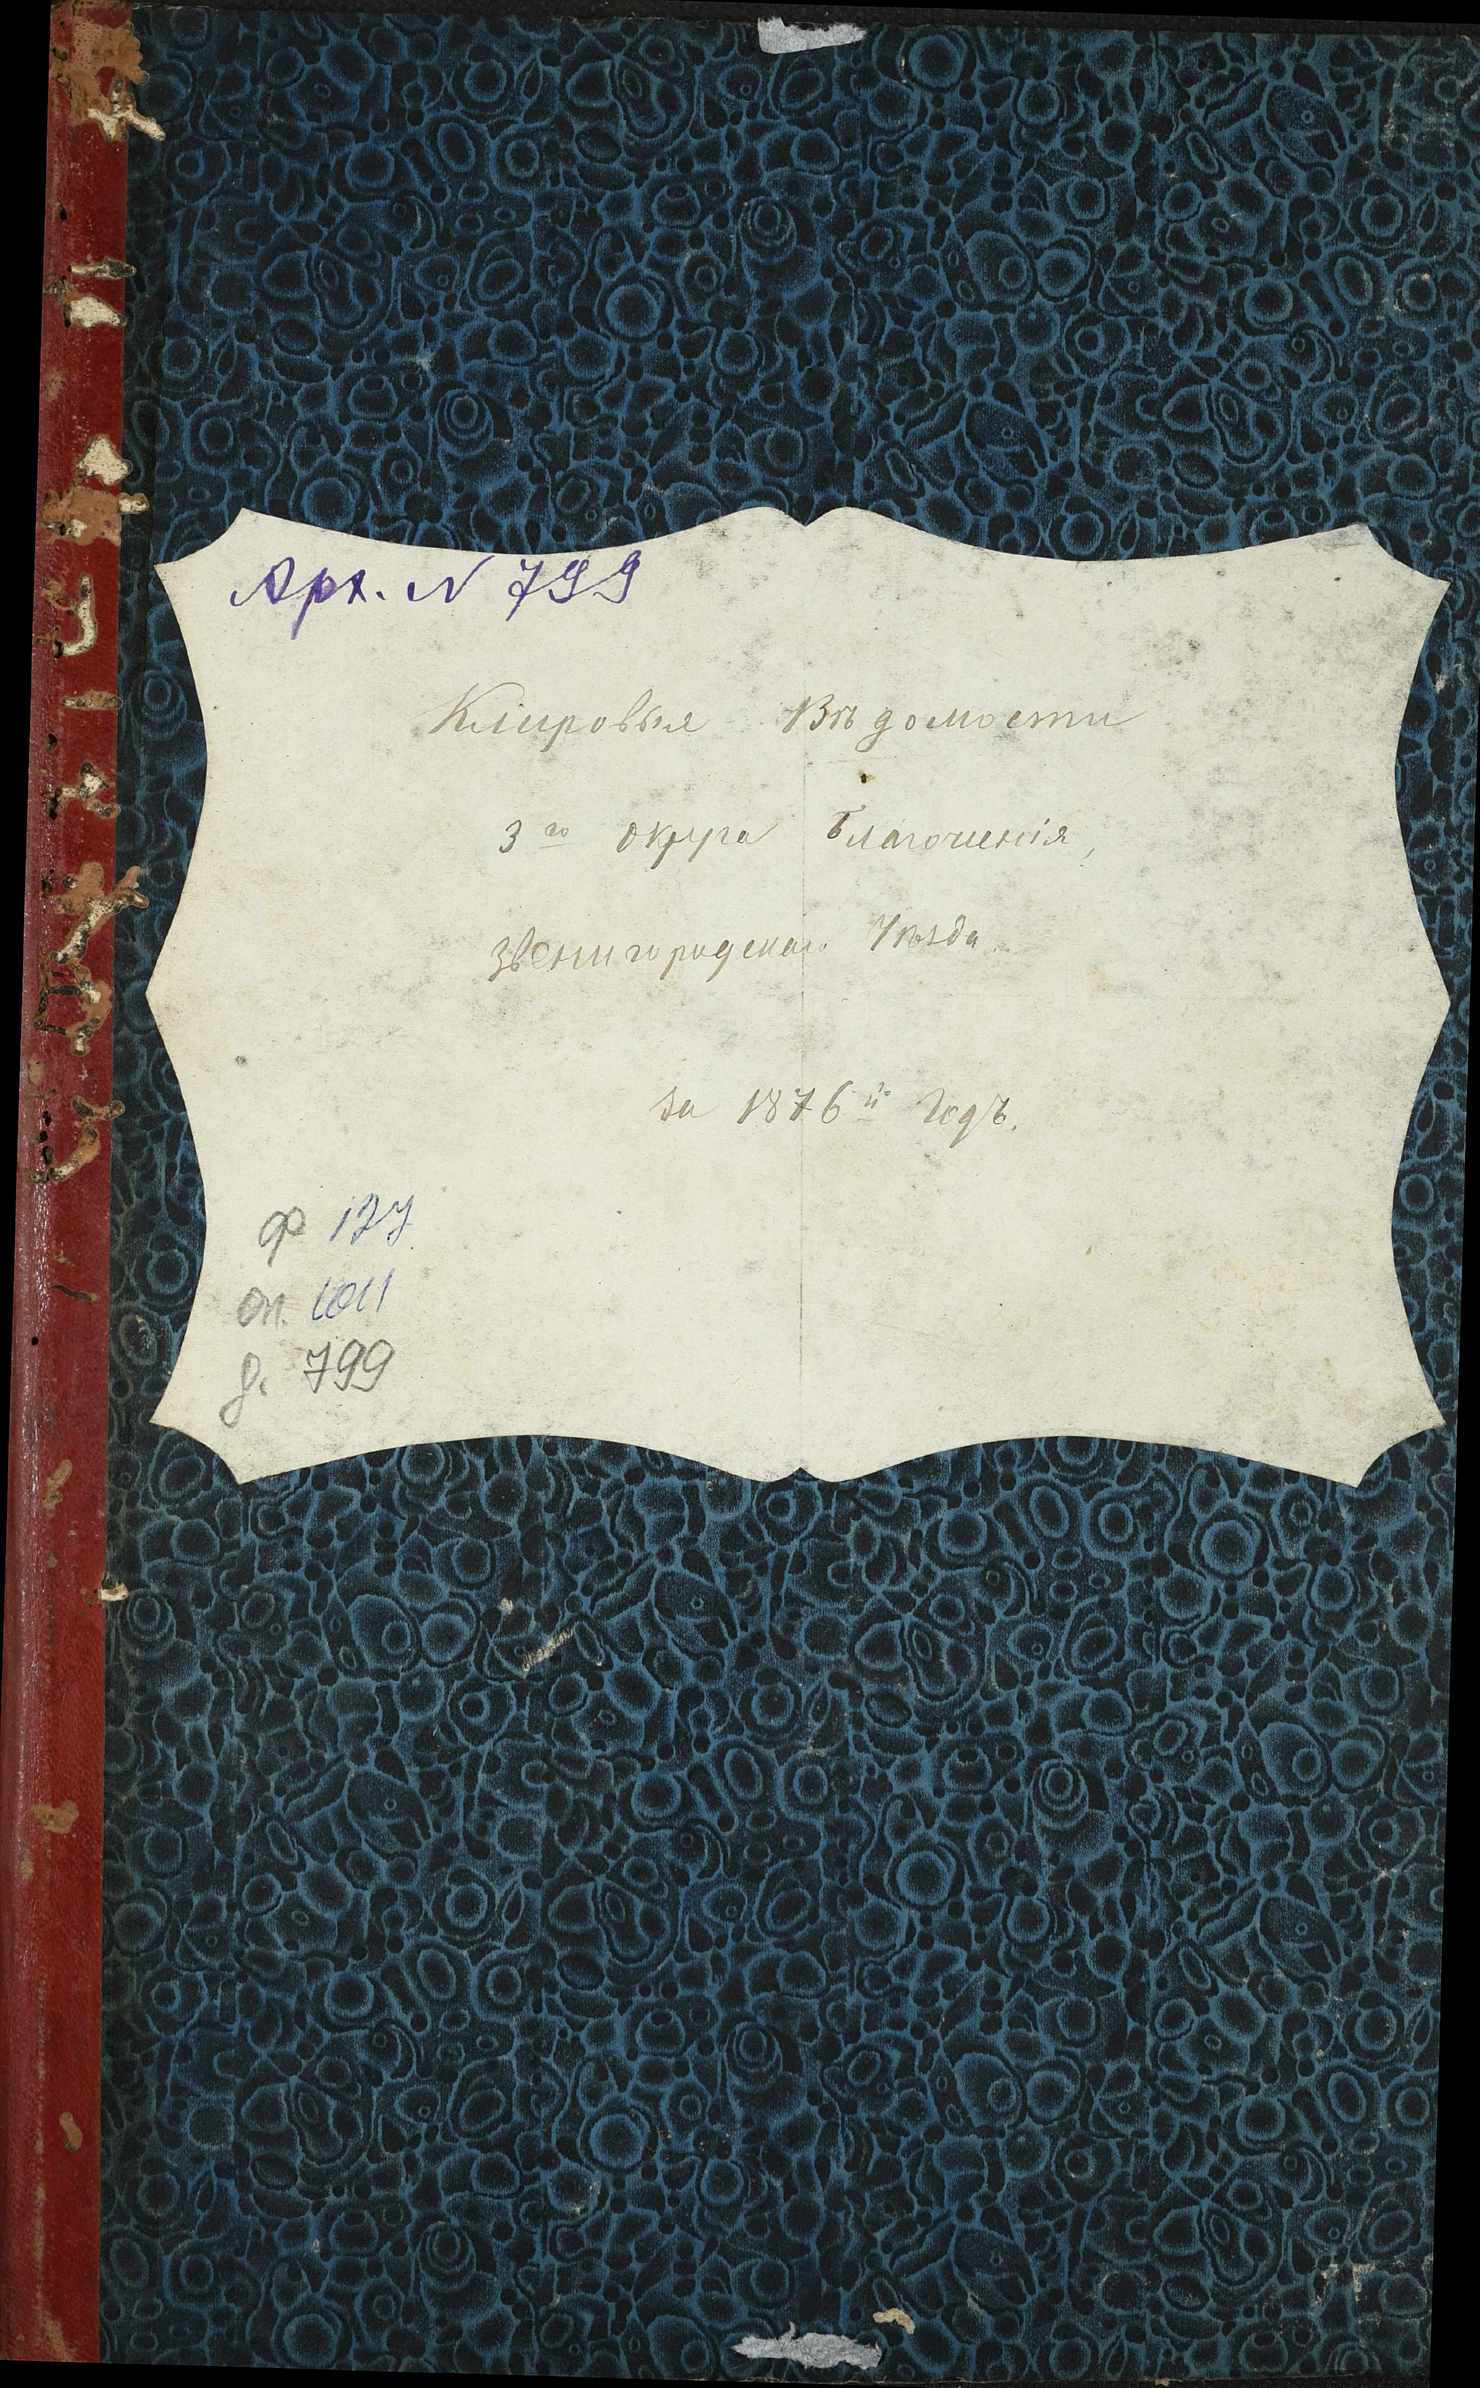 Арх. N 799
Клировыя Вѣдомости
3го округа Благочинія,
Звенигородскаго Уѣзда
за 1876й Годъ.
ф 127
оп. 1011
д. 799